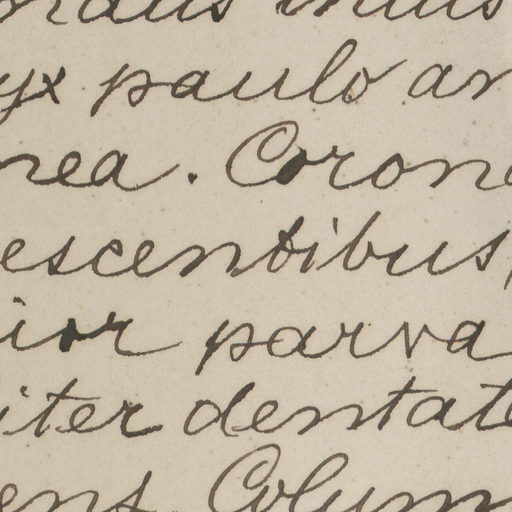 yx paulo an
nea. Corone
escentibus,
ior parva
iter dentate
ens. Colum